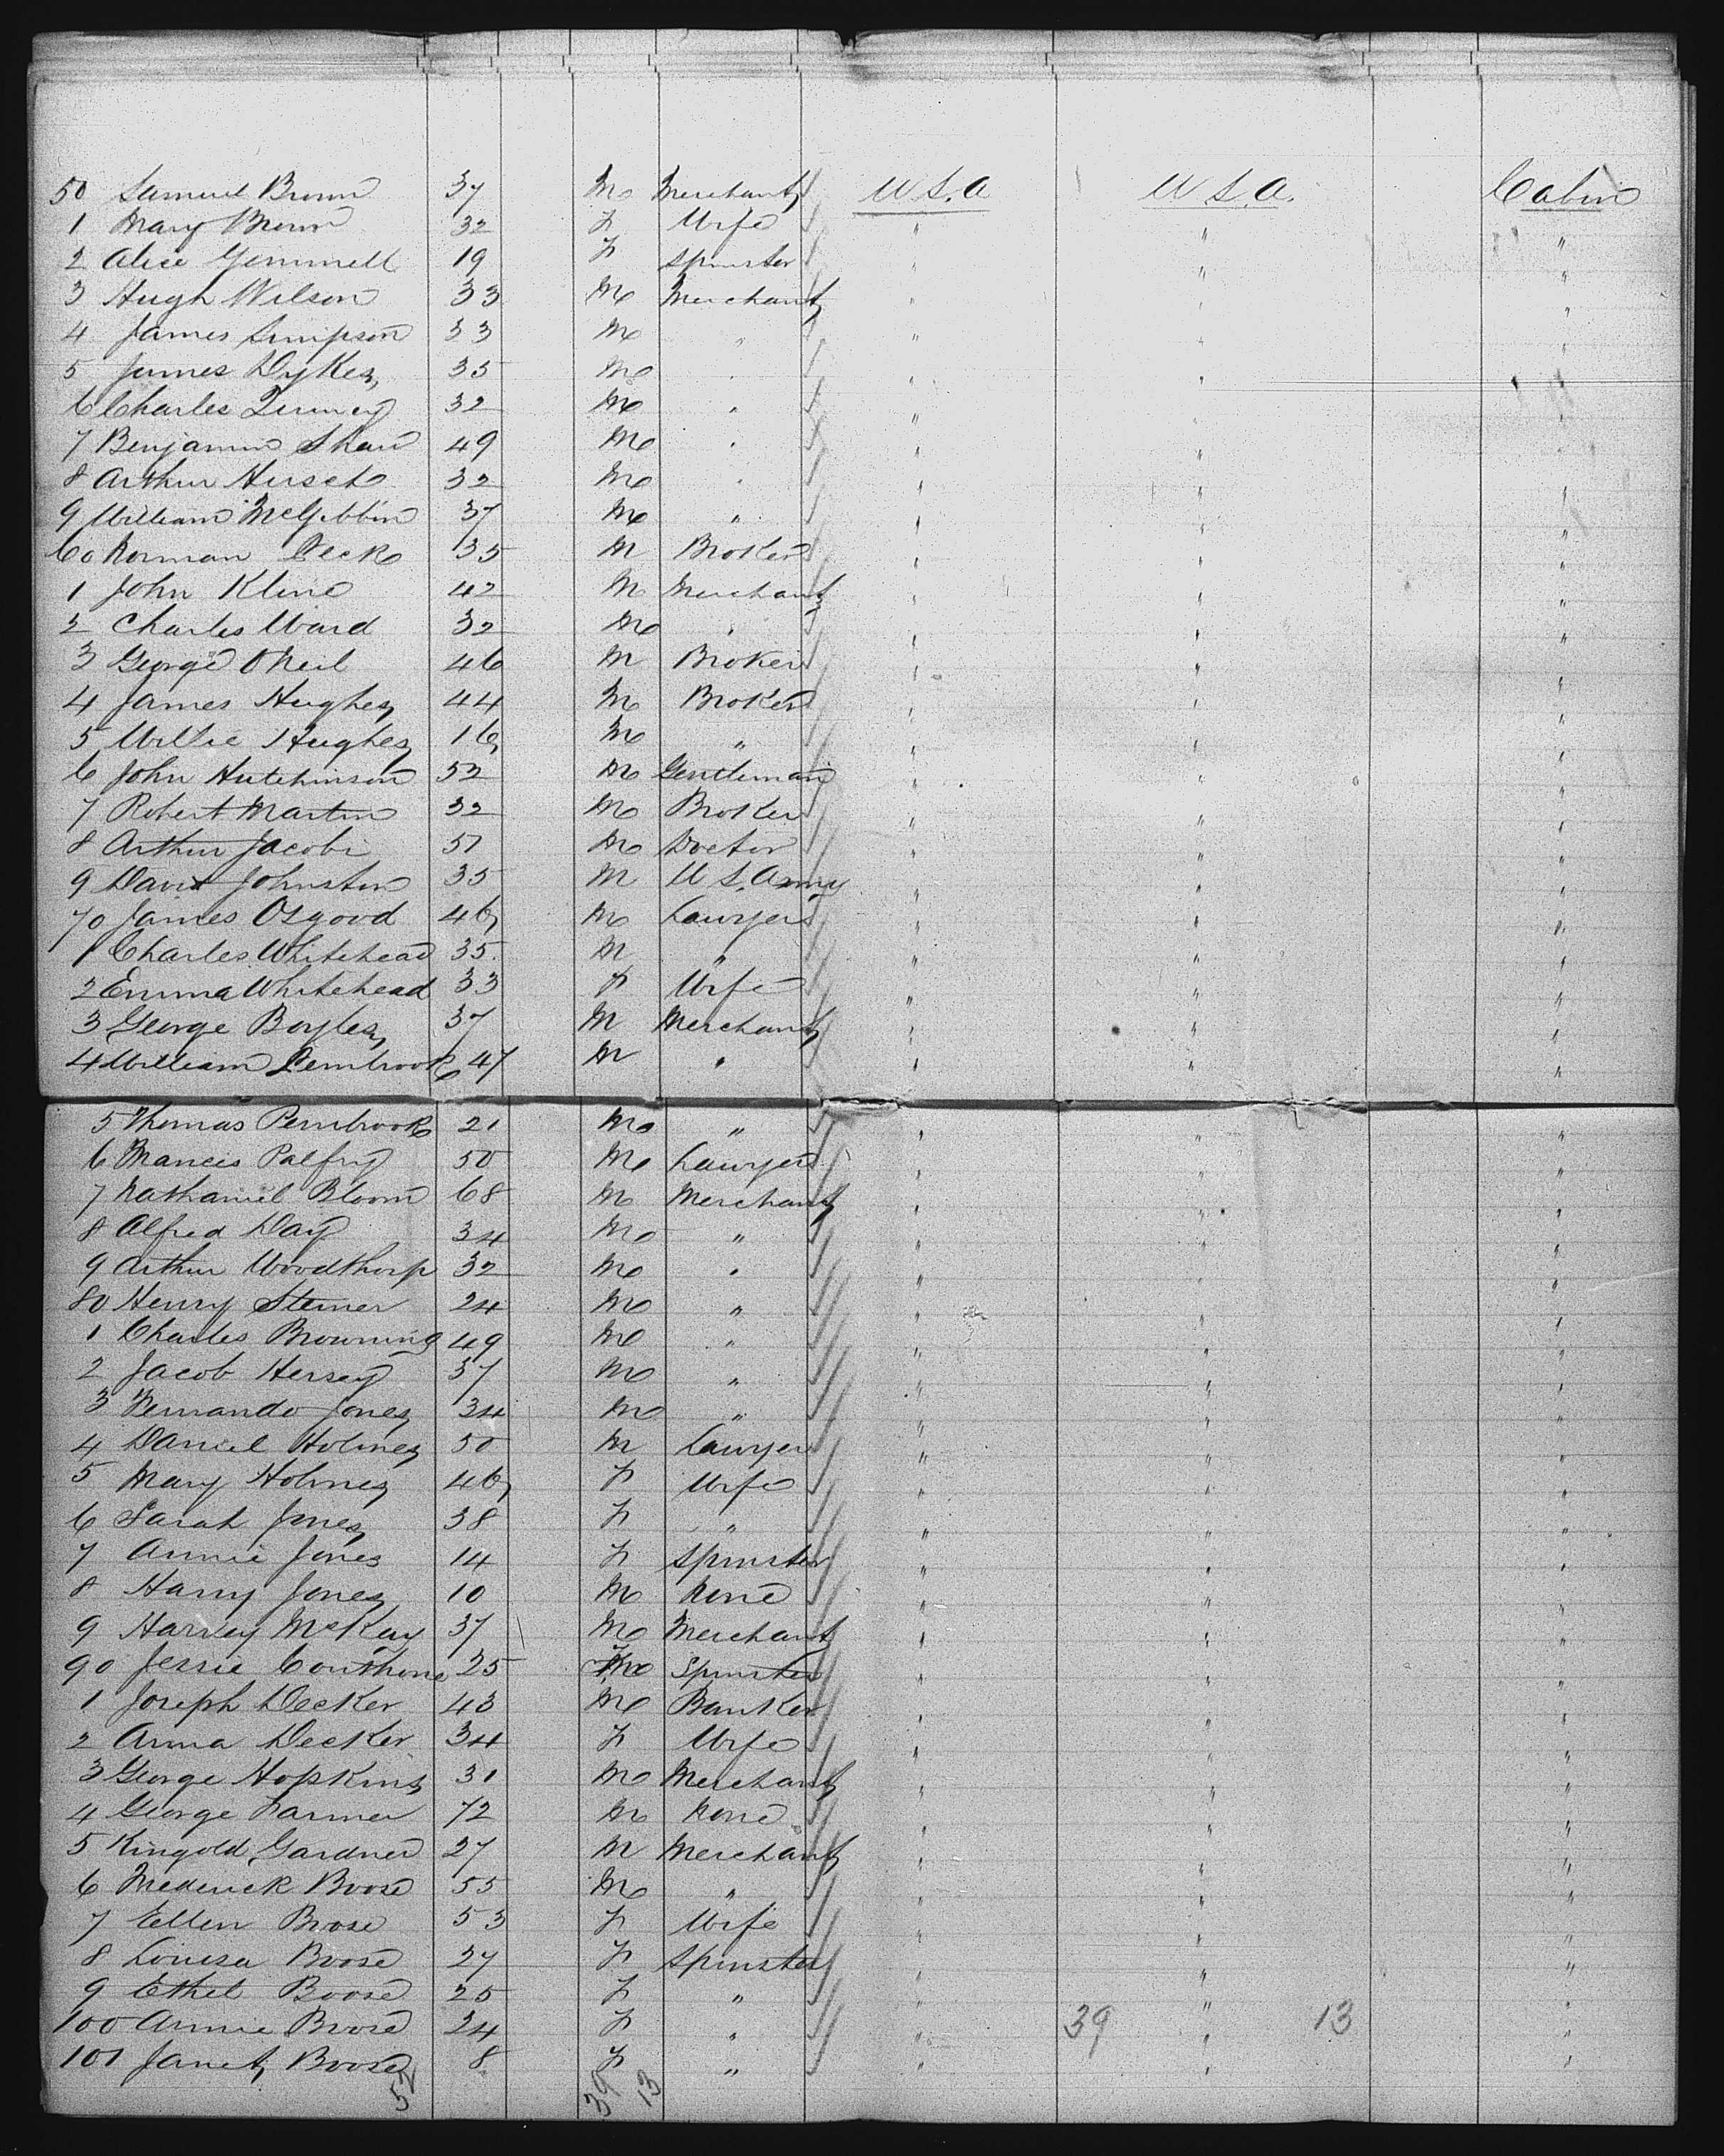 50 Samuel Brown 37 M Merchant U S. A U S. A. Cabin
1 Mary Brown 32 F Wife " " "
2 Alice Gemmell 19 F Spinster " " "
3 Hugh Wilson 33 M Merchant " " "
4 James Simpson 33 M " " " "
5 James Dykes 35 M " " " "
6 Charles 32 M " " " "
7 Benjamin Shaw 49 M " " " "
8 Arthur Hirsch 32 M " " " "
9 William McGibbin 37 M " " " "
60 Norman 35 M Broker " " "
1 John Kline 42 M Merchant " " "
2 Charles Ward 32 M " " " "
3 George ONeil 46 M Broker " " "
4 James Hughes 44 M Broker " " "
5 Willie Hughes 16 M " " " "
6 John Hutchinson 52 M Gentleman " " "
7 Robert Martin 32 M Broker " " "
8 Arthur Jacobi 51 M Doctor " " "
9 David Johnston 35 M U S. Army " " "
70 James Osgood 46 M Lawyer " " "
1 Charles Whitehead 35. M " " " "
2 Emma Whitehead 33 F Wife " " "
3 George Boyles 37 M Merchant " " "
4 William Pembrook 47 M " " " "
5 Thomas Pembrook 21 M " " " "
6 Francis Palfry 50 M Lawyer " " "
7 Nathaniel Bloom 68 M Merchant " " "
8 Alfred Day 34 M " " " "
9 Arthur Woodthorp 32 M " " " "
80 Henry Steiner 24 M " " " "
1 Charles Browning 49 M " " " "
2 Jacob Hersey 37 M " " " "
3 Fernando Jones 34 M " " " "
4 Daniel Holmes 50 M Lawyer " " "
5 Mary Holmes 46 F Wife " " "
6 Sarah Jones 38 F " " " "
7 Annie Jones 14 F Spinster " " "
8 Harry Jones 10 M None " " "
9 Harvey McKay 37 M Merchant " " "
90 Jessie 25 F Spinster " " "
1 Joseph Decker 43 M Banker " " "
2 Anna Decker 34 F Wife " " "
3 George Hopkins 31 M Merchant " " "
4 George Farmer 72 M None " " "
5 Ringold Gardner 27 M Merchant " " "
6 Frederick Boose 55 M " " " "
7 Ellen Boose 53 F Wife " " "
8 Louisa Boose 27 F Spinster " " "
9 Ethel Boose 25 F " " " "
100 Annie Boose 24 F " " 39 " 13 "
101 Janet Boose 8 F " " " "
52 39 13